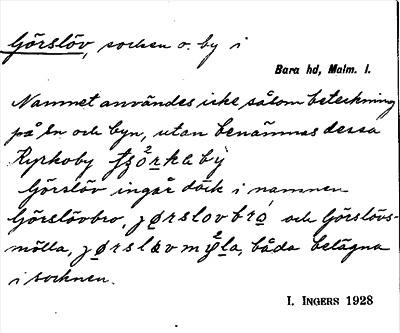 Görslöv, socken o. by i
Bara hd, Malm. l.
Namnet användes icke såsom beteckning
på sn och byn, utan benämnas dessa
Kyrkoby
Görslöv ingår dock i namnen
Görslövbro, och Görslövs-
mölla, båda belägna
i socknen.
I. INGERS 1928